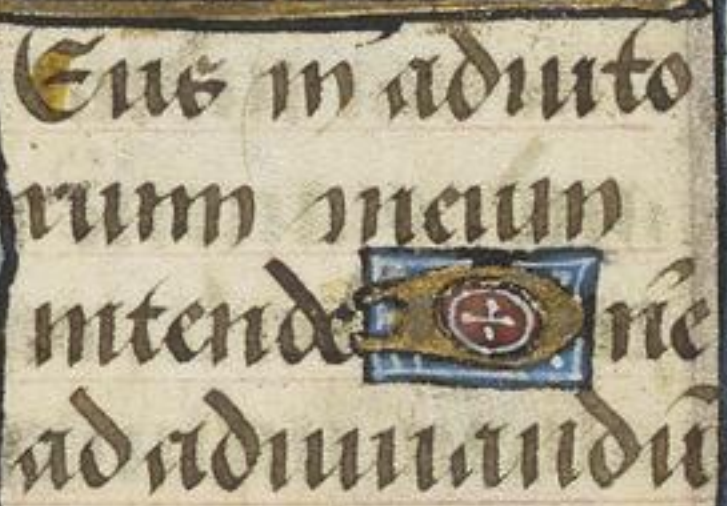 Eus in adiuto
rium meum
intende Dñe
ad adiuuandū